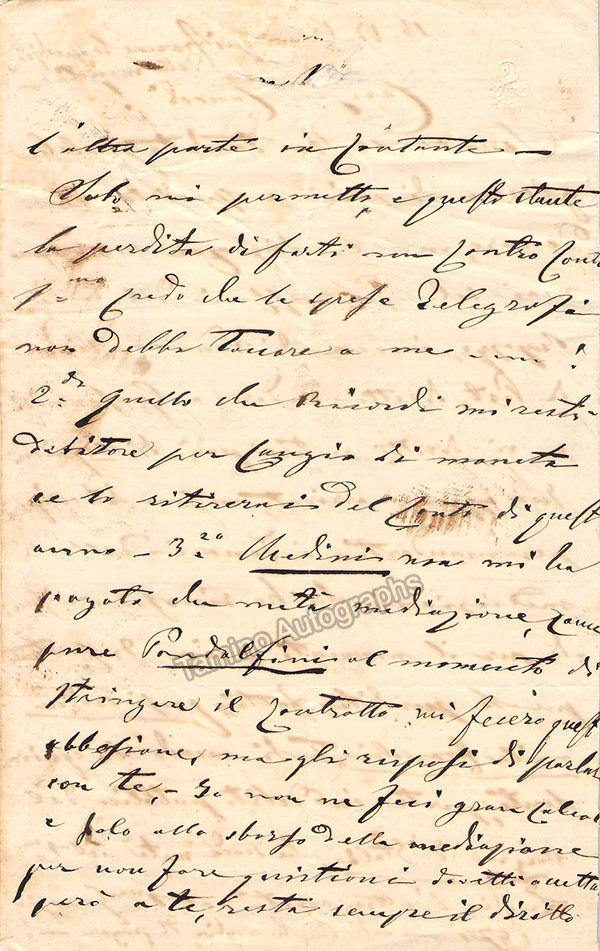 l'altra parte in Contante —
Solo mi permetto, e questo stante
la perdita di farti un Contro Conto
1.mo credo che le spese Telegrafi
non debba toccare a me
2.do quello che Ricordi mi resta
debitore per Cangio di moneta
ce lo ritirerai del Conto di quest
anno — 3.zo Medini non mi ha
pagato che metà mediazione, Come
pure Pandolfini al momento di
stringere il Contratto mi fecero quest
obbiezione, ma gli risposi di parlar
con te, — Io non ne feci gran Calcol
e solo allo sborso della mediazione
per non fare quistioni dovetti accettar
però a te, resta sempre il diritto
Tamino Autographs